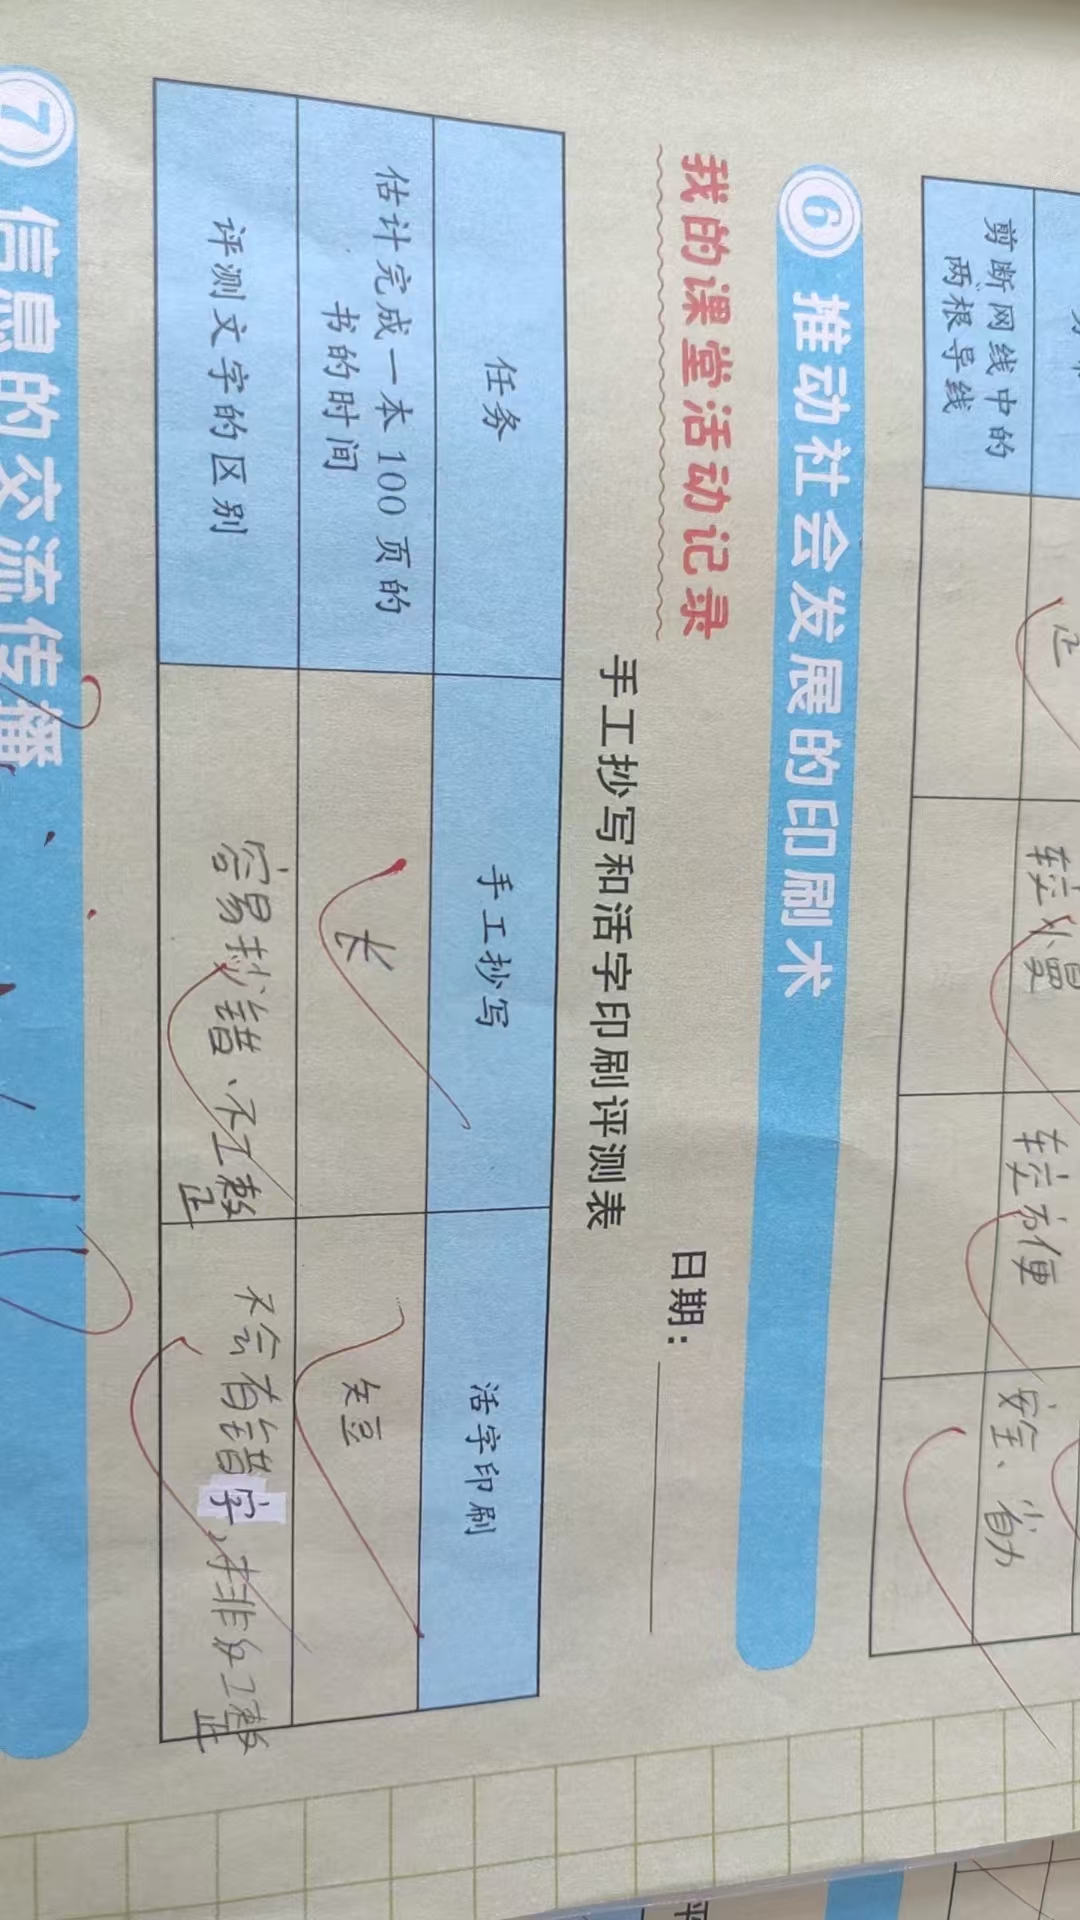 剪断网线中的
两根导线
轻小
轻方便
安全、省力
6 推动社会发展的印刷术
我的课堂活动记录
日期：
手工抄写和活字印刷评测表
任务 手工抄写 活字印刷
估计完成一本100页的
书的时间
长 短
评测文字的区别
容易抄错、不工整
不会有错字，排的工整
7 信息的交流传播